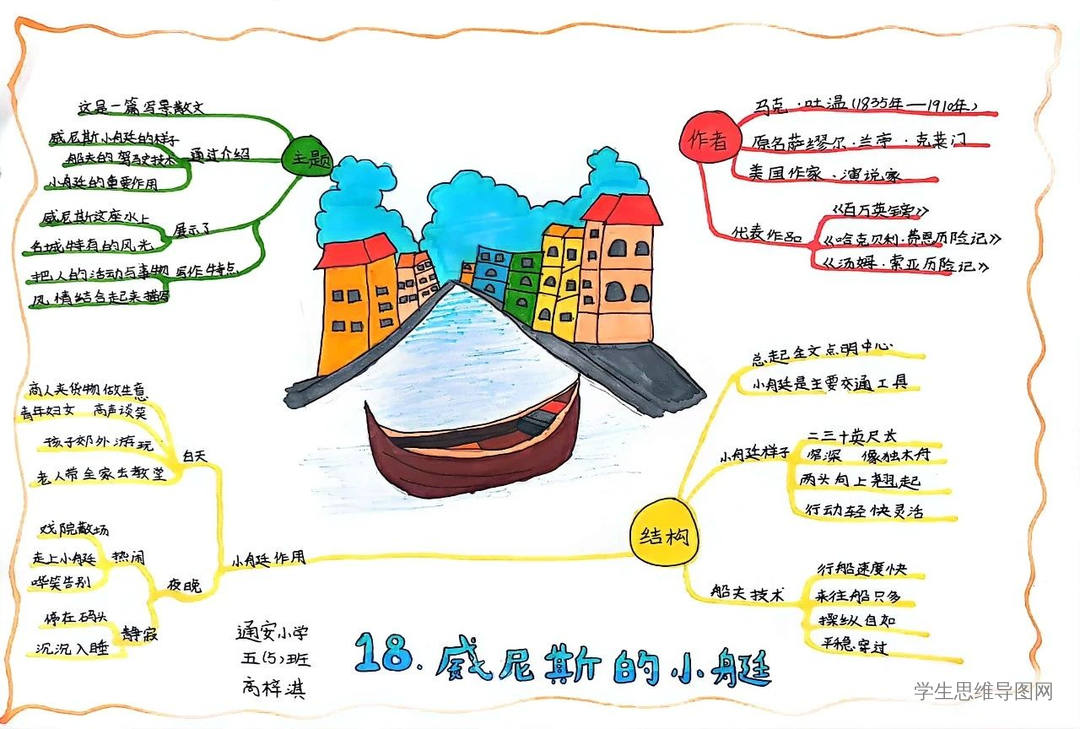 主题
这是一篇写景散文
通过介绍
威尼斯小艇的样子
船夫的驾驶技术
小艇的重要作用
展示了
威尼斯这座水上
名城特有的风光
写作特点
把人的活动与事物
风情结合起来描写
作者
马克·吐温(1835年—1910年)
原名萨缪尔·兰亭·克莱门
美国作家·演说家
代表作品
《百万英镑》
《哈克贝利·费恩历险记》
《汤姆·索亚历险记》
结构
总起全文点明中心
小艇是主要交通工具
小艇样子
二三十英尺长
窄深 像独木舟
两头向上翘起
行动轻快灵活
船夫技术
行船速度快
来往船只多
操纵自如
平稳穿过
小艇作用
白天
商人夹货物做生意
青年妇女 高声谈笑
孩子郊外游玩
老人带全家去教堂
夜晚
热闹
戏院散场
走上小艇
哗笑告别
静寂
停在码头
沉沉入睡
通安小学
五(5)班
高梓淇
18.威尼斯的小艇
学生思维导图网